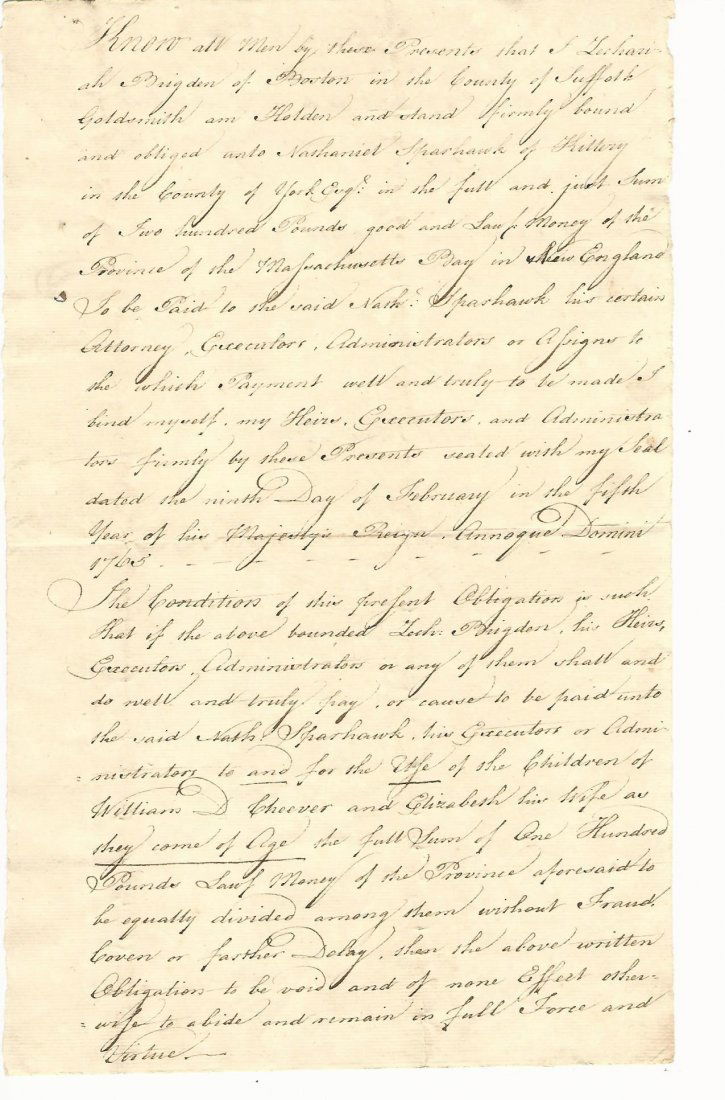 Know all Men by these Presents that I Zechari-
ah Brigden of Boston in the County of Suffolk
Goldsmith am Holden and stand firmly bound
and obliged unto Nathaniel Sparhawk of Kittery
in the County of York Esqr. in the full and just Sum
of Two hundred Pounds good and Lawf. Money of the
Province of the Massachusetts Bay in New England
To be Paid to the said Nathl. Sparhawk his certain
Attorney, Executors, Administrators or Assigns to
the which Payment well and truly to be made I
bind myself, my Heirs, Executors, and Administra
tors firmly by these Presents sealed with my Seal
dated the ninth Day of February in the fifth
Year of his Majesty's Reign, Annoque Domini
1765. - - - - - - - -
The Condition of this present Obligation is such,
that if the above bounded Zech: Brigden, his Heirs,
Executors, Administrators or any of them shall and
do well and truly pay, or cause to be paid unto
the said Nath. Sparhawk, his Executors or Admi-
=nistrators to and for the Use of the Children of
William D Cheever and Elizabeth his Wife as
they come of Age the full Sum of One Hundred
Pounds Lawf Money of the Province aforesaid to
be equally divided among them without Fraud,
Coven or farther Delay, then the above written
Obligation to be void and of none Effect other-
=wise to abide and remain in full Force and
Virtue.—